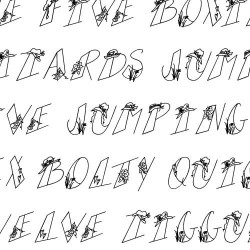 E FIVE BOXI
ZARDS JUMP
IVE JUMPING
EN BOLTY QUI
VELVE ZIGGU